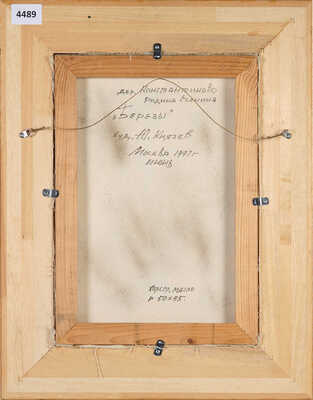 4489
дер. Константиново
родина Есенина
„Березы"
худ. М. Князев
Москва 1997 г
июнь
орг, масло
р 50×35.